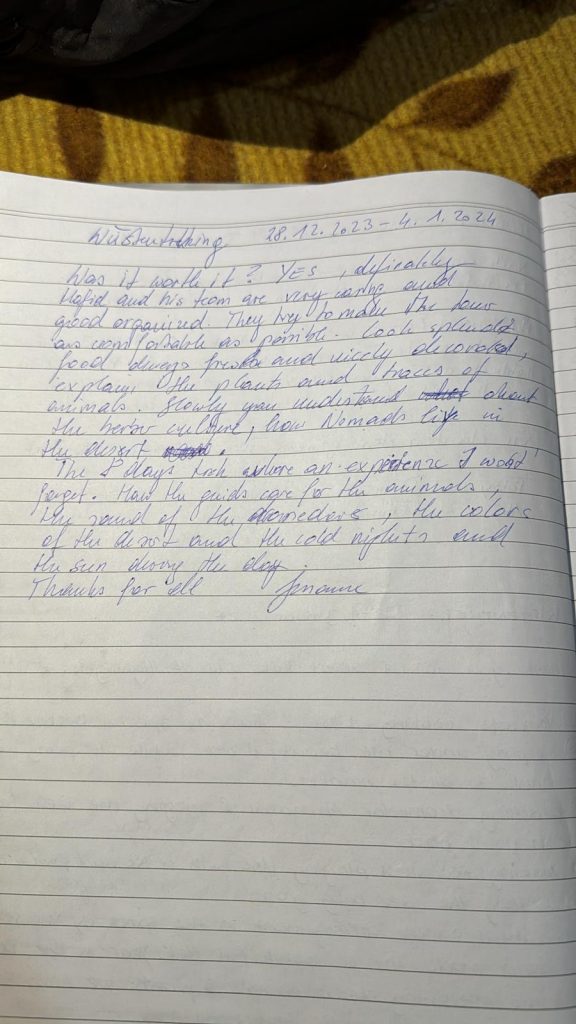 Wüstentrekking 28.12.2023 – 4.1.2024
Was it worth it? YES, definately
Hafid and his team are very caring and
good organized. They try to make the tour
as comfortable as possible. Cook splendit
food always fresh and nicely decorated,
explain the plants and traces of
animals. Slowly you understand about
the berber culture, how Nomads life in
the desert.
The 8 days trek where an experience I wont
forget. How the guids care for the animals,
the sound of the dromedars, the colors
of the desert and the cold nights and
the sun during the day.
Thanks for all